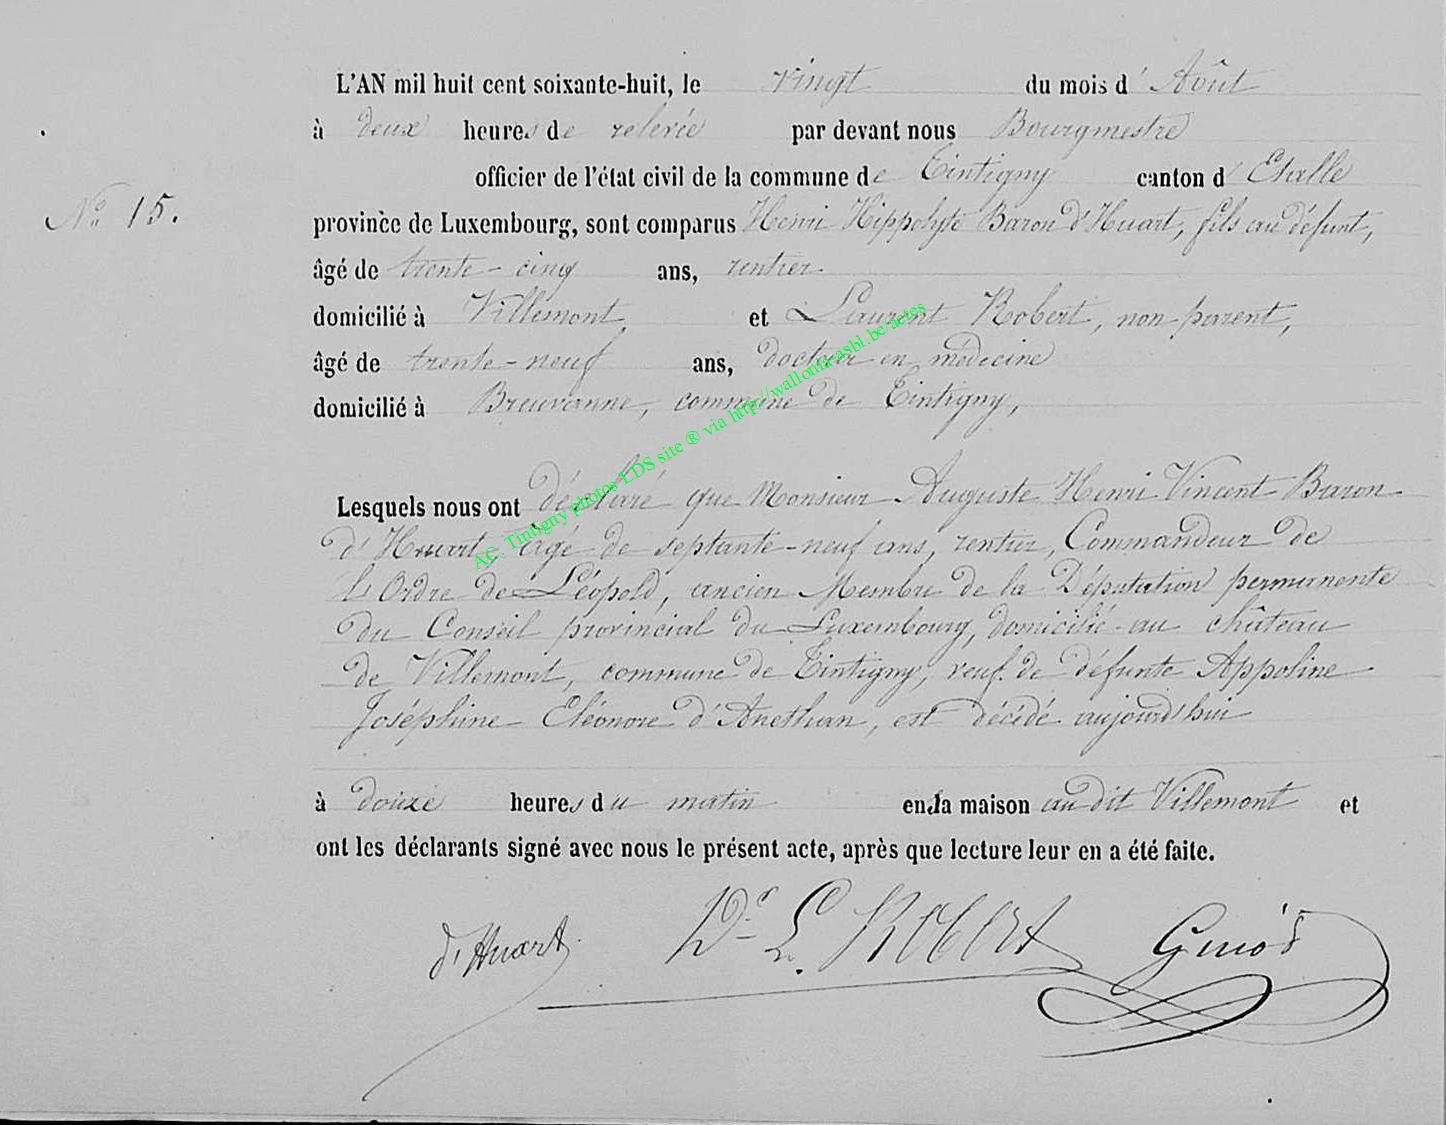 L'AN mil huit cent soixante-huit, le vingt du mois d' Août
à deux heures de relevée par devant nous Bourgmestre
officier de l'état civil de la commune de Tintigny canton d' Etalle
N° 15.
province de Luxembourg, sont comparus Henri Hippolyte Baron d'Huart, fils au défunt,
âgé de trente-cinq ans, rentier
domicilié à Villemont, et Laurent Robert, non-parent,
âgé de trente-neuf ans, docteur en médecine
domicilié à Breuvanne, commune de Tintigny,
Lesquels nous ont déclaré que Monsieur Auguste Henri Vincent Baron
d'Huart âgé de septante-neuf ans, rentier, Commandeur de
l'Ordre de Léopold, ancien Membre de la Députation permanente
du Conseil provincial du Luxembourg, domicilié au château
de Villemont, commune de Tintigny, veuf de défunte Appoline
Joséphine Eléonore d'Anethan, est décédé aujourd'hui
à douze heures du matin en la maison au dit Villemont et
ont les déclarants signé avec nous le présent acte, après que lecture leur en a été faite.
d'Huart Dr L. Robert
AC Tintigny photos LDS site ® via http://wallonia-asbl.be/actes